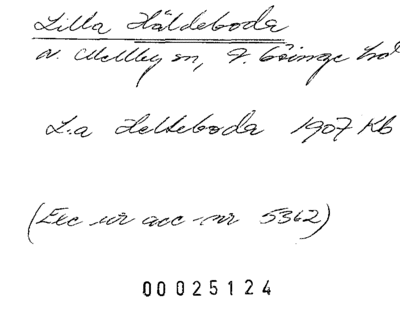 Lilla Häldeboda
N. Mellby sn, V. Göinge hd
L:a Helteboda 1907 Kb
(Exc ur acc nr 5362)
00025124